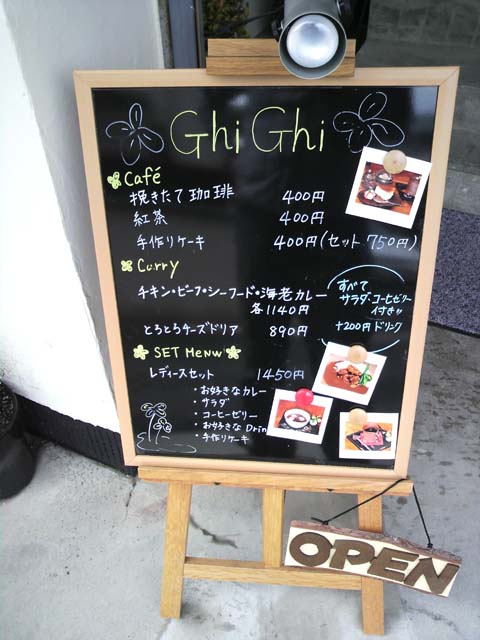 Ghi Ghi
Café
挽きたて珈琲 400円
紅茶 400円
手作りケーキ 400円(セット 750円)
Curry
チキン・ビーフ・シーフード・海老カレー
各1140円
とろとろチーズドリア 890円
すべて
サラダ・コーヒーゼリー
付き!!
+200円ドリンク
SET MENU
レディースセット 1450円
・お好きなカレー
・サラダ
・コーヒーゼリー
・お好きなDrin
・手作りケーキ
OPEN